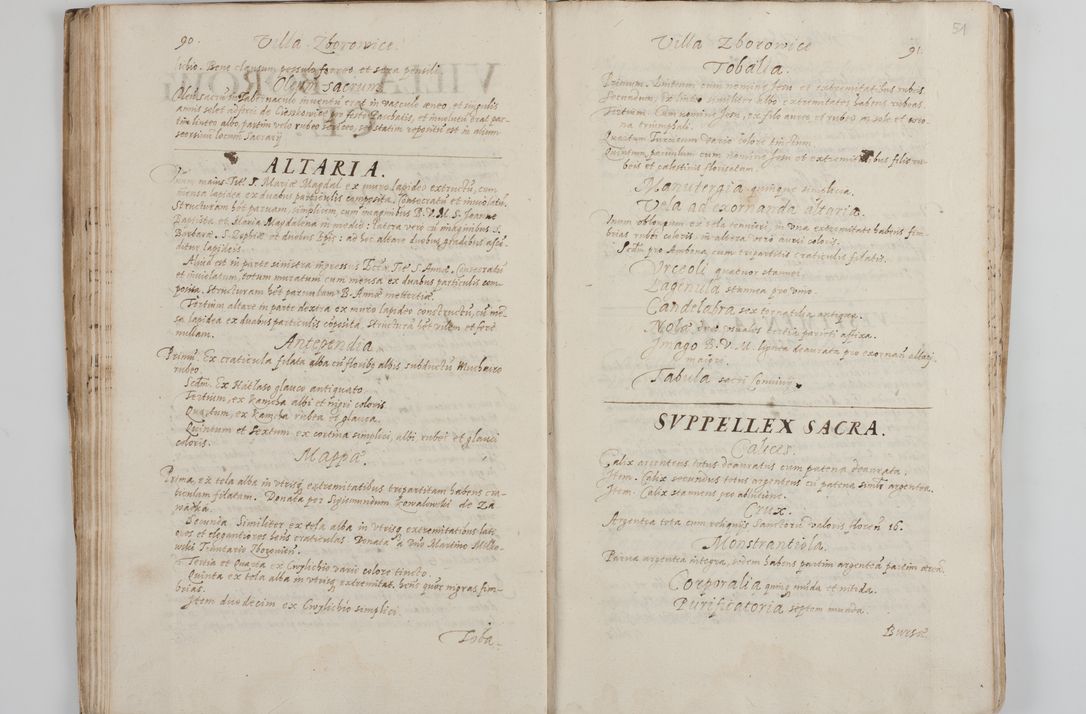 90. Villa Zborowice.
Cibio. Bene clausum pessulo ferreo et sera pensili.
Oleum sacrum
Oleū sacrū in Tabernaculo inuentū erat in vasculo æneo, et singulis
Annis solet adferri de Ciezkowice pro festo Paschatis, et inuolutū erat par-
tim linteo albo partim velo rubeo serico, sed statim repositū est in alium
seorsiuū locum Sacrarij
ALTARIA.
Vnum maius Titł S. Mariæ Magdal. ex muro lapideo extructū, cum
mensa lapidea ex duabus particulis composita. Consecratū et inuiolatū.
Structuram hēt paruam, simplicem, cum imaginibus B. V. M. S. Joanne
Baptista, et Maria Magdalena in medio: latera vero cū imaginibus S.
Barbaræ, S. Zophiæ et duobus Ep̄is: ad hoc altare duobus gradibus ascē-
ditur lapideis.
Aliud est in parte sinistra ingressus Eccłæ Titł S. Annæ, Consecratū
et inuiolatum, totum muratum cum mensa ex duabus particulis com-
posita. Structuram hēt paruulam B. Annæ mettertiæ.
Tertium altare in parte dextra ex muro lapideo constructū, cū mē-
sa lapidea ex duabus particulis cōposita. Structurā hēt vilem et ferè
nullam.
Antependia
Primū. Ex craticula filata alba cū floribꝰ albis subductū Muchairo
rubeo
Secdm. Ex Hatlaso glauco antiquato
Tertium, ex kamcha albi et nigri coloris.
Quartum, ex kamcha rubea et glauca.
Quintum et Sextum ex cortina simplici, albi, rubei et glauci
coloris.
Mappæ.
Prima, ex tela alba in vtrisq; extremitatibus tripartitam habens cra-
ticulam filatam. Donata per Sigismundum Kowalinski de Za
wadka.
Secunda Similiter ex tela alba in vtrisq; extremitatibus lati-
ores et elegantiores hēns craticulas. Donata a Dno Martino Milko-
wski Tenutario Zborouien.
Tertia et Quarta ex Cwylichio varii colore tincto.
Quinta ex tela alba in vtrisq; extremitat. hēns quōq; nigras fim-
brias.
Item duodecim ex Cwylichio simplici.
Toba-
54
Villa Zborowice 91.
Tobalia.
Primum. Linteum, cum nomine Jesu et extremitatibus rubeis.
Secundum, Ex linteo similiter albo extremitates habens rubeas.
Tertium. Cum nomine Jesu, ex filo aureo et rubeo in sole et coro-
na triumphali.
Quartum Turcicum vario colore tinctum.
Quintum paruulum cum nomine Jesu et extremitatibus filis ru-
beis et cælestinis florisatam.
Manutergia quinque simplicia.
Vela ad exornanda altaria.
Vnum oblongum ex tela tenuiori, in vna extremitate habens fim-
brias rubei coloris, in altera vero aurei coloris.
Secdm pro Ambona, cum tripartitis craticulis filatis.
Vrceoli quatuor stannei.
Lagenula stannea pro vino.
Candelabra sex tornatilia antiqua.
Nolæ duæ manuales tertia parieti affixa.
Imago B. V. M. lignea deaurata pro exornan altarj
maiore.
Tabula sacri conuiuij
SVPPELLEX SACRA.
Calices.
Calix argenteus totus deauratus cum patena deaurata.
Item. Calix secundus totus argenteus cū patena simłr argentea.
Item. Calix stanneus per ablutione.
Crux.
Argentea tota cum reliquijs Sanctorū valoris florenū 16.
Monstrantiola.
Parua argentea integra, pedem habens partim argenteū partim æreū.
Corporalia quinq; munda et nitida.
Purificatoria septem munda.
Bursæ.